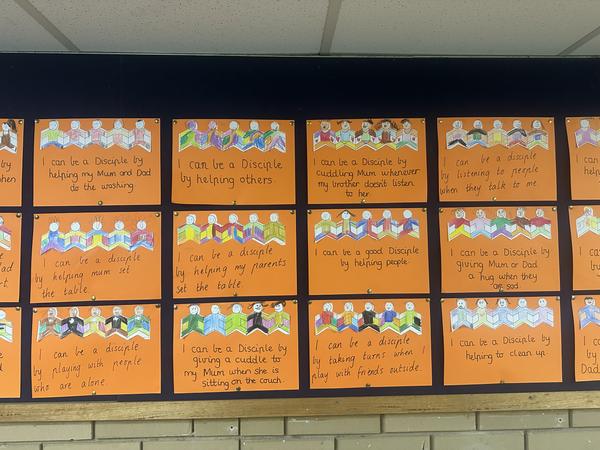 by
hen
I can be a Disciple by
helping my Mum and Dad
do the washing.
I can be a Disciple
by helping others.
I can be a Disciple by
cuddling Mum whenever
my brother doesn't listen
to her.
I can be a disciple
by listening to people
when they talk to me.
I can
help
I can be a disciple
by helping mum set
the table.
I can be a disciple
by helping my parents
set the table.
I can be a good Disciple
by helping people.
I can be a Disciple by
giving Mum or Dad
a hug when they
are sad
I can be a disciple
by playing with people
who are alone.
I can be a Disciple by
giving a cuddle to
my Mum when she is
sitting on the couch.
I can be a disciple
by taking turns when I
play with friends outside.
I can be a Disciple by
helping to clean up.
I can
by
Dad